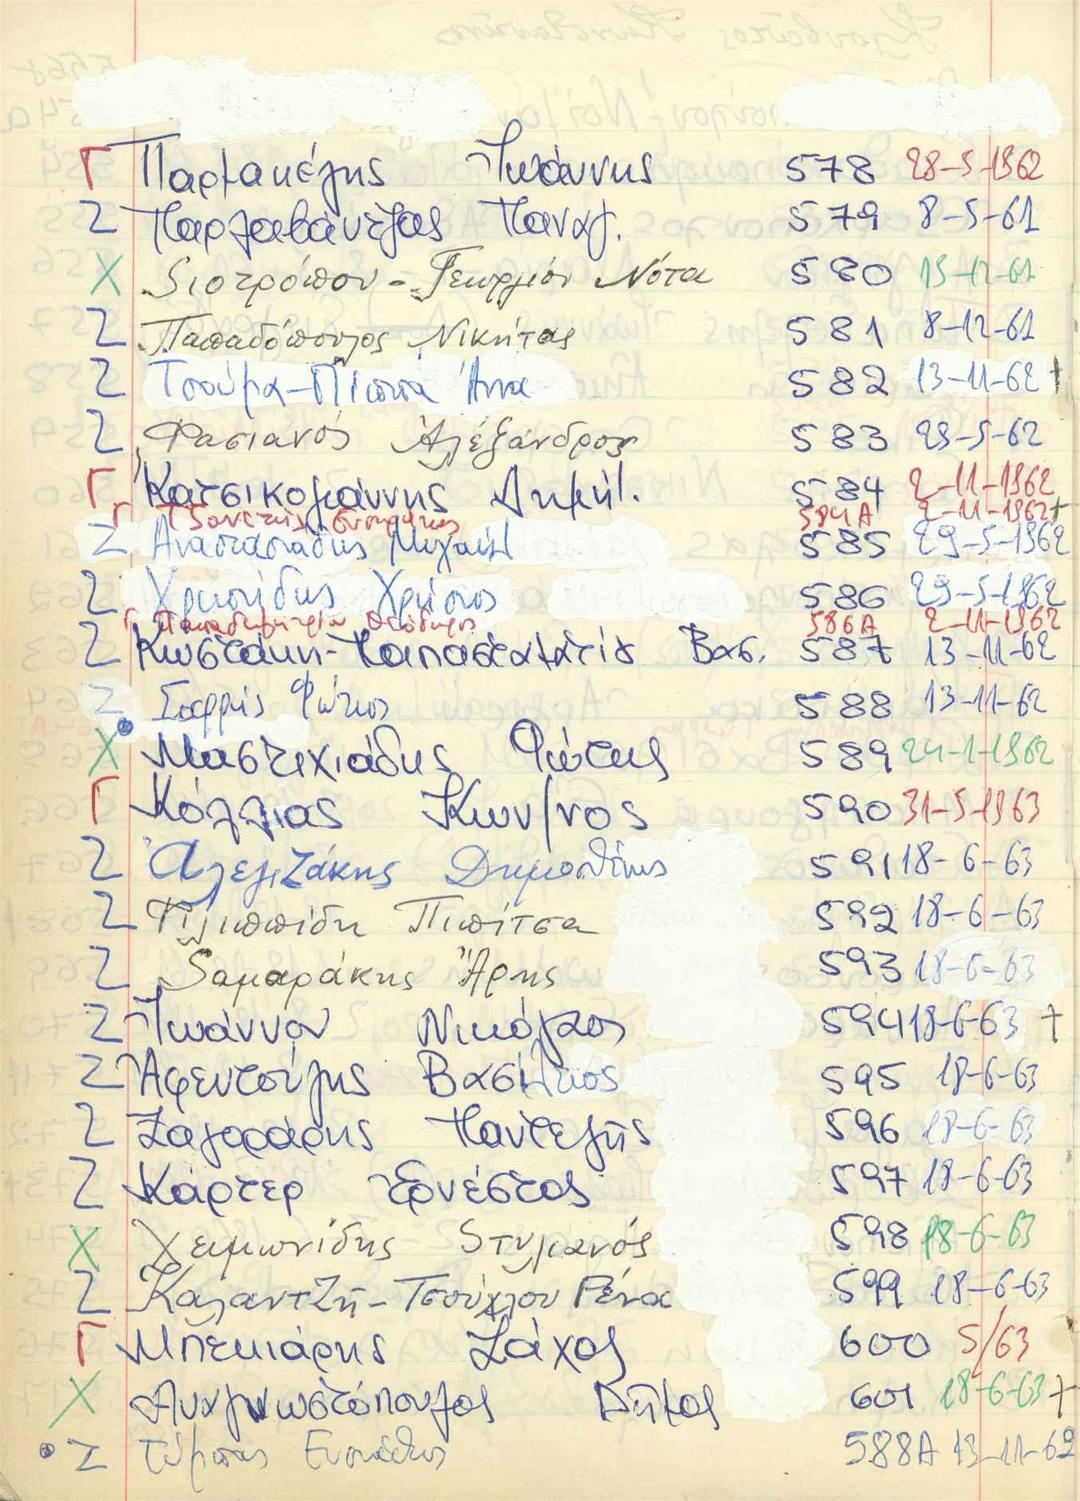 Γ Παρμακέλης Ιωάννης 578 28-5-1962
Ζ Καρλαβάνελας Παναγ. 579 8-5-61
Χ Σιοτρόπου-Γεωργίου Νότα 580 15-12-61
Ζ Παπαδόπουλος Νικήτας 581 8-12-61
Ζ Τσούμα- Άννα 582 13-11-62 †
Ζ Φασιανός Αλέξανδρος 583 29-5-62
Γ Κατσικογιάννης Δημήτ. 584 2-11-1962
Γ 584Α 2-11-1962 †
Ζ Αναστασιάδης Μιχαήλ 585 29-5-1962
Ζ Χρηστίδης Χρήστος 586 29-5-1962
Γ Παπαδημητρίου Θεόδωρος 586Α 2-11-1962
Ζ Κωστάκη-Παπασταματίου Βασ. 587 13-11-62
Ζ Σαρρής Φώτιος 588 13-11-62
Χ Μαστιχιάδης Φώτης 589 24-1-1962
Γ Κόλλιας Κων/νος 590 31-5-1963
Ζ Αλεξάκης Δημοσθένης 591 18-6-63
Ζ Φιλιππίδη Πιπίτσα 592 18-6-63
Ζ Σαμαράκης Άρης 593 18-6-63
Ζ Ιωάννου Νικόλαος 594 18-6-63 †
Ζ Αφεντούλης Βασίλειος 595 18-6-63
Ζ Ζαγοράρης Παντελής 596 18-6-63
Ζ Κάρτερ Ερνέστος 597 18-6-63
Χ Χειμωνίδης Στυλιανός 598 18-6-63
Ζ Καλαντζή-Τσούχλου Ρένα 599 18-6-63
Γ Μπεκιάρης Ζάχος 600 5/63
Χ Αναγνωστόπουλος Δήμος 601 18-6-63 †
Ζ Τύμπας Ευστάθιος 588Α 13-11-62